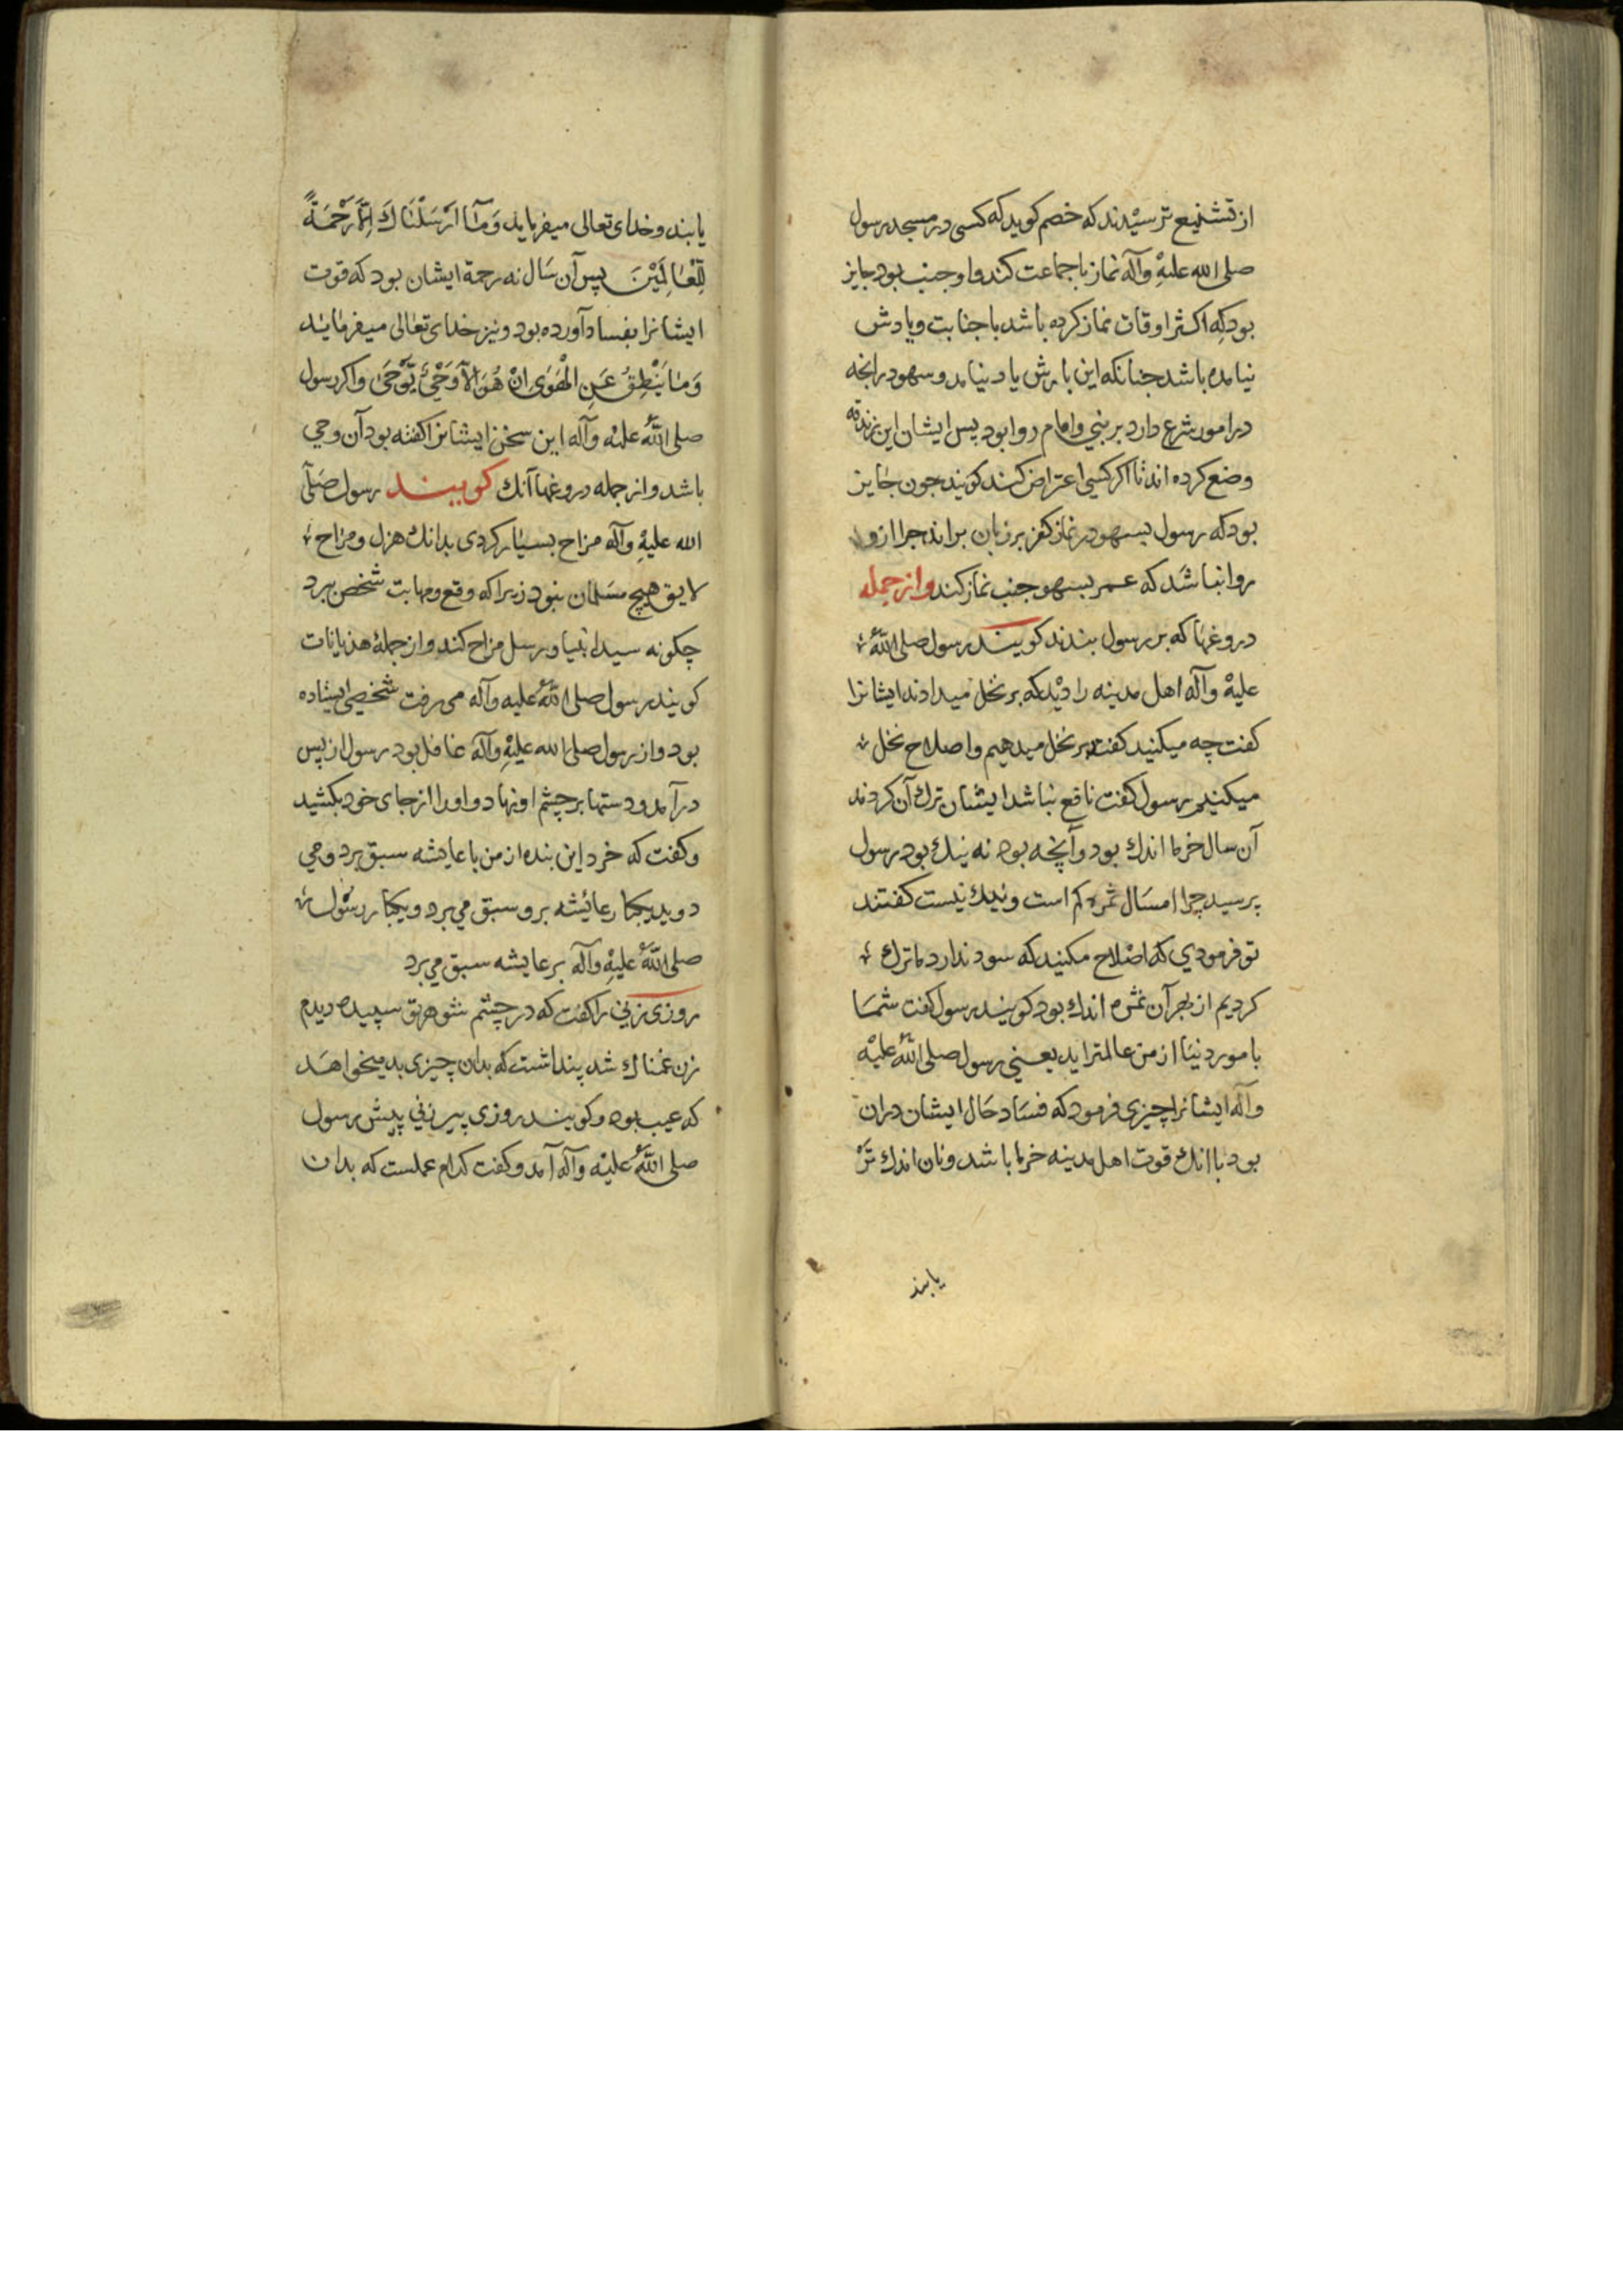 از تشنیع ترسیدند که خصم کوید که کسی در مسجد رسول
صلی الله علیه وآله نماز با جماعت کند و او جنب بود جایز
بود که اکثر اوقات نماز کرده باشد با جنابت و یادش
نیامده باشد جنانکه این بارش یاد نیامد و سهو در انجه
در امور شرع دارد بر نبی و امام روا بود پس ایشان این زندقه
وضع کرده اند تا اکر کسی اعتراض کند کویند جون جایز
بود که رسول بسهو در نماز کفر بر زبان براند جرا از و
روا نباشد که عمر بسهو جنب نماز کند و از جمله
دروغها که بر رسول بندند کویند رسول صلی الله
علیه وآله اهل مدینه را دید که بر نخل میدادند ایشانرا
کفت چه میکنید کفتند بر نخل میدهیم و اصلاح نخل
میکنیم رسول کفت نافع نباشد ایشان ترك آن کردند
آن سال خرما اندك بود و آنچه بود نه نیك بود رسول
پرسید چرا امسال ثمره کم است و نیك نیست کفتند
تو فرمودی که اصلاح مکنید که سود ندارد ما ترك
کردیم از بهر آن ثمره اندك بود کویند رسول کفت شما
بامور دنیا از من عالمتراید یعنی رسول صلی الله علیه
وآله ایشانرا چیزی فرمود که فساد حال ایشان دران
بود با انك قوت اهل مدینه خرما باشد و نان اندك تر
یابند
یابند و خدای تعالی میفرماید وَمَآ اَرْسَلْنَاكَ اِلَّا رَحْمَةً
لِلْعَالَمِیْنَ پس آن سال نه رحمة ایشان بود که قوت
ایشانرا بفساد آورده بود و نیز خدای تعالی میفرماید
وَمَا یَنْطِقُ عَنِ الْهَوَى اِنْ هُوَ اِلَّا وَحْیٌ یُّوْحَى و اکر رسول
صلی الله علیه وآله این سخن ایشانرا کفته بود آن وحی
باشد و از جمله دروغها آنك کویند رسول صلی
الله علیه وآله مزاح بسیار کردی بدانك هزل و مزاح
لایق هیچ مسلمان نبود زیرا که وقع و مهابت شخص ببرد
چکونه سید انبیا و رسل مزاح کند و از جملۀ هذیانات
کویند رسول صلی الله علیه وآله می رفت شخصی ایستاده
بود و از رسول صلی الله علیه وآله غافل بود رسول از پس
درآمد و دستها بر چشم او نهاد و او را از جای خود بکشید
و کفت که خرد این بنده از من با عایشه سبق برد و می
دوید یکبار عائشه برو سبق می برد و یکبار رسول
صلی الله علیه وآله بر عایشه سبق می برد
روزی زنی را کفت که در چشم شوهر تو سپیده دیدم
زن غمناك شد پنداشت که بدان چیزی بد میخواهد
که عیب بود و کویند روزی پیرزنی پیش رسول
صلی الله علیه وآله آمد و کفت کدام عملست که بدان